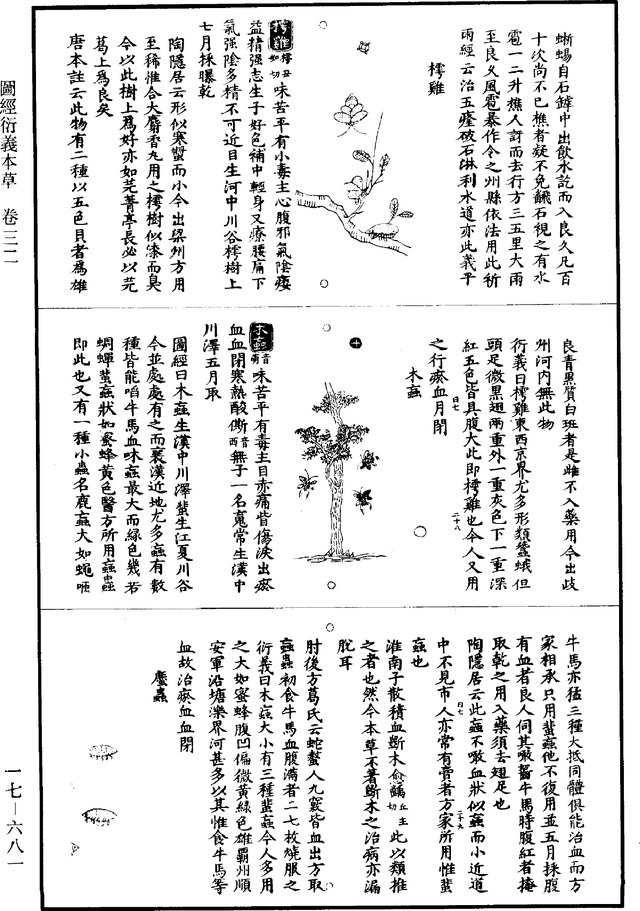 圖經衍義本草　卷三二
一七—六八一
蜥蜴自石罅中出飲水訖而入良久凡百
十次尚不已樵者疑不免翻石視之有水
雹一二升樵人訝而去行方三五里大雨
至良久風雹暴作今之州縣依法用此祈
雨經云治五癃破石淋利水道亦此義乎
樗雞
樗雞樗丑如切味苦平有小毒主心腹邪氣陰痿
益精强志生子好色補中輕身又療腰痛下
氣强陰多精不可近目生河中川谷樗樹上
七月採曝乾
陶隱居云形似寒螿而小今出梁州方用
至稀惟合大麝香丸用之樗樹似漆而臭
今以此樹上爲好亦如芫菁亭長必以芫
葛上爲良矣
唐本註云此物有二種以五色具者爲雄
良青黑質白斑者是雌不入藥用今出歧
州河內無此物
衍義曰樗雞東西京界尤多形類蠶蛾但
頭足微黑翅兩重外一重灰色下一重深
紅五色皆具腹大此即樗雞也今人又用
之行瘀血月閉
木蝱
木蝱音萌味苦平有毒主目赤痛眥傷淚出瘀
血血閉寒熱酸㾷音西無子一名魂常生漢中
川澤五月取
圖經曰木蝱生漢中川澤蜚生江夏川谷
今並處處有之而襄漢近地尤多蝱有數
種皆能啗牛馬血味蝱最大而綠色幾若
蜩蟬蜚蝱狀如蜜蜂黃色醫方所用蝱蟲
即此也又有一種小蟲名鹿蝱大如蠅咂
牛馬亦猛三種大抵同體俱能治血而方
家相承只用蜚蝱他不復用並五月採腹
有血者良人伺其噉齧牛馬時腹紅者掩
取乾之用入藥須去翅足也
陶隱居云此蝱不噉血狀似蝱而小近道
中不見市人亦常有賣者方家所用惟蜚
蝱也
淮南子散積血斷木愈齲丘主切此以類推
之者也然今本草不著斷木之治病亦漏
脫耳
肘後方葛氏云蛇螫人九竅皆血出方取
蝱蟲初食牛馬血腹滿者二七枚燒服之
衍義曰木蝱大小有三種蜚蝱今人多用
之大如蜜蜂腹凹偏微黃綠色雄霸州順
安軍沿塘濼界河甚多以其惟食牛馬等
血故治瘀血血閉
蜚蝱